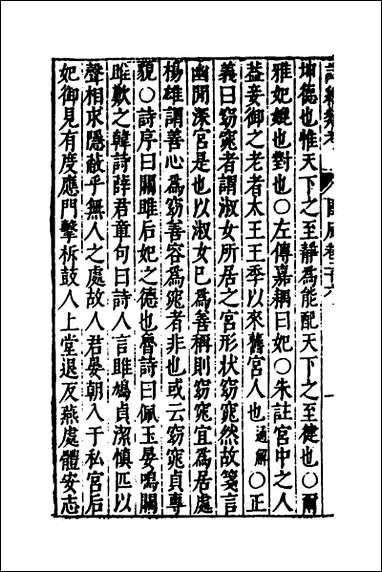 坤德也惟天下之至靜爲能配天下之至徤也○爾
雅妃媲也對也○左傳嘉耦曰妃○朱註宮中之人
益妾御之老者太王王季以來舊宮人也通解○正
義曰窈窕者謂淑女所居之宮形狀窈窕然故箋言
幽閒深宮是也以淑女已爲善稱則窈窕宜爲居處
楊雄謂善心爲窈善容爲窕者非也或云窈窕貞專
貌○詩序曰關雎后妃之德也齊詩曰佩玉晏鳴關
雎歎之韓詩薛君章句曰詩人言雎鳩貞潔慎匹以
聲相求隱蔽乎無人之處故人君晏朝入于私宮后
妃御見有度應門擊柝鼓人上堂退反燕處體安志